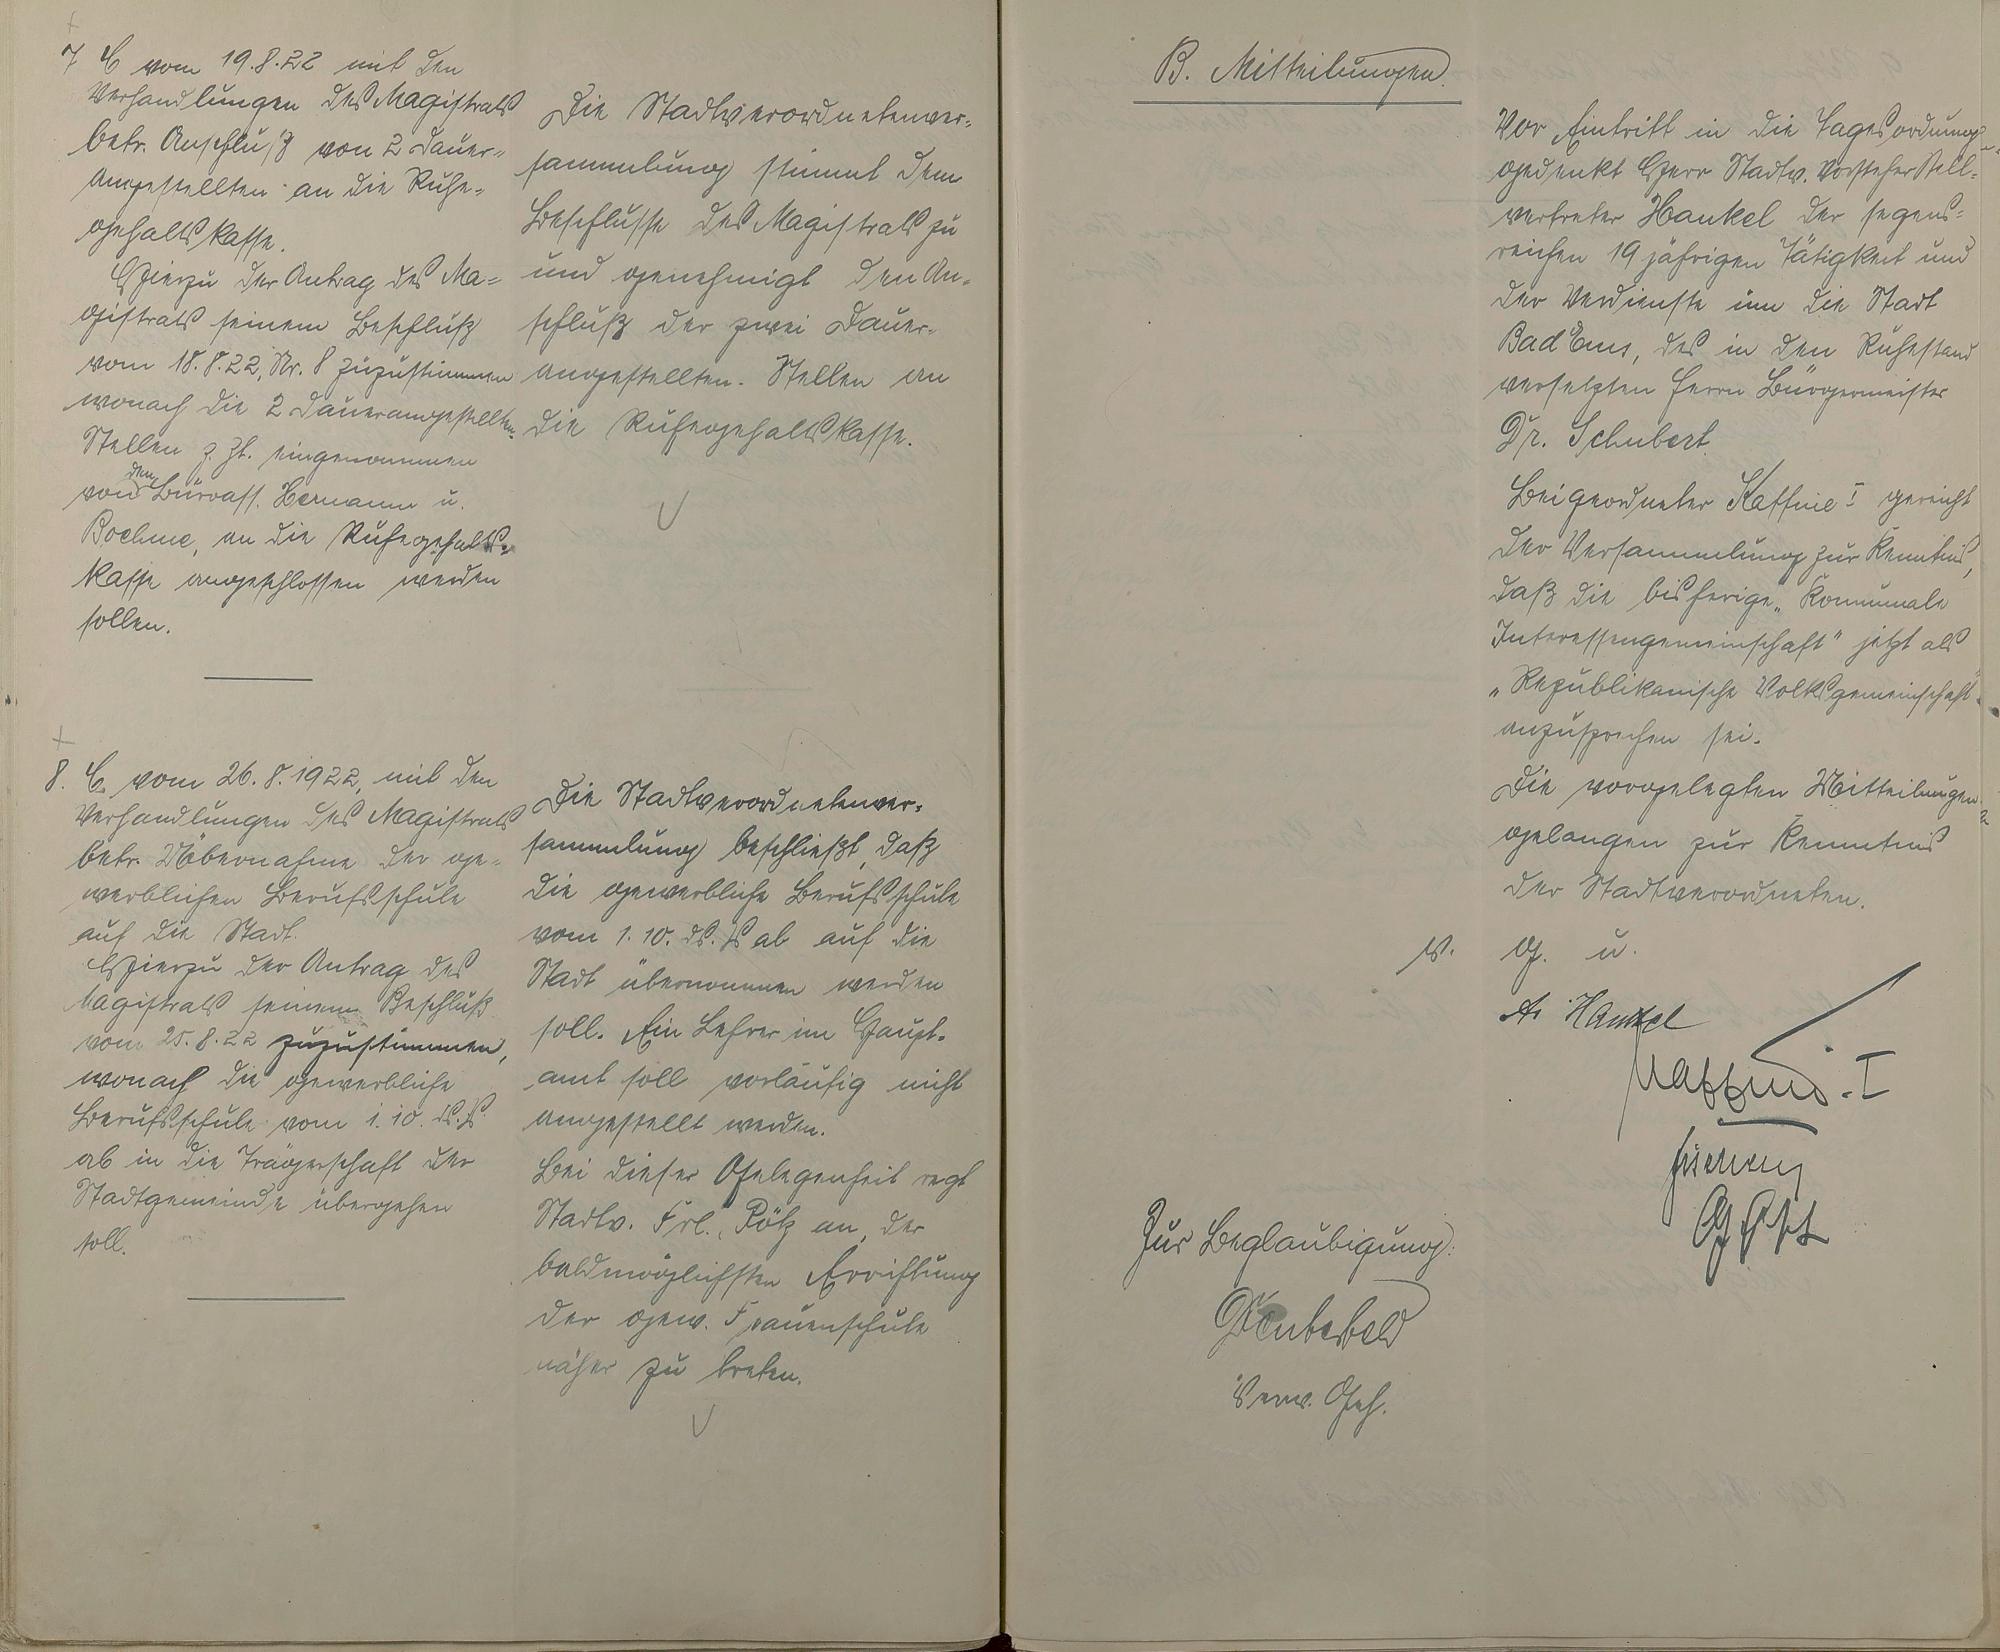 7 E vom 19.8.22 mit den
Verhandlungen des Magistrats
betr. Anschluß von 2 Dauer-
angestellten an die Ruhe-
gehaltskasse.
Hierzu der Antrag des Ma-
gistrats seinem Beschluß
vom 18.8.22, Nr. 8 zuzustimmen
wonach die 2 Dauerangestellten-
Stellen z. Zt. eingenommen
von den Büroass. Hermann u.
Boehme, an die Ruhegehalts-
kasse angeschlossen werden
sollen.
Die Stadtverordnetenver-
sammlung stimmt dem
Beschlusse des Magistrats zu
und genehmigt den An-
schluß der zwei Dauer-
angestellten-Stellen an
die Ruhegehaltskasse.
8. E. vom 26.8.1922, mit den
Verhandlungen des Magistrats
betr. Übernahme der ge-
werblichen Berufsschule
auf die Stadt.
Hierzu der Antrag des
Magistrats seinem Beschluß
vom 25.8.22 zuzustimmen,
wonach die gewerbliche
Berufsschule vom 1.10. ds. Js
ab in die Trägerschaft der
Stadtgemeinde übergehen
soll.
Die Stadtverordnetenver-
sammlung beschließt, daß
die gewerbliche Berufsschule
vom 1.10. ds. Js ab auf die
Stadt übernommen werden
soll. Ein Lehrer im Haupt-
amt soll vorläufig nicht
angestellt werden.
Bei dieser Gelegenheit regt
Stadtv. Frl. Pötz an, der
baldmöglichsten Errichtung
der gew. Frauenschule
näher zu treten.
B. Mitteilungen.
Vor Eintritt in die Tagesordnung
gedenkt Herr Stadtv. Vorsteher Stell-
vertreter Hankel der segens-
reichen 19 jährigen Tätigkeit und
der Verdienste um die Stadt
Bad Ems, des in den Ruhestand
versetzten Herrn Bürgermeister
Dr. Schubert.
Beigeordneter Kaffine I gereicht
der Versammlung zur Kenntnis,
daß die bisherige „Kommunale
Interessengemeinschaft" jetzt als
„Republikanische Volksgemeinschaft"
anzusprechen sei.
Die vorgelegten Mitteilungen
gelangen zur Kenntnis
der Stadtverordneten.
v. g. u.
A. Hankel
Kaffine I
Zur Beglaubigung:
Verw. Geh.